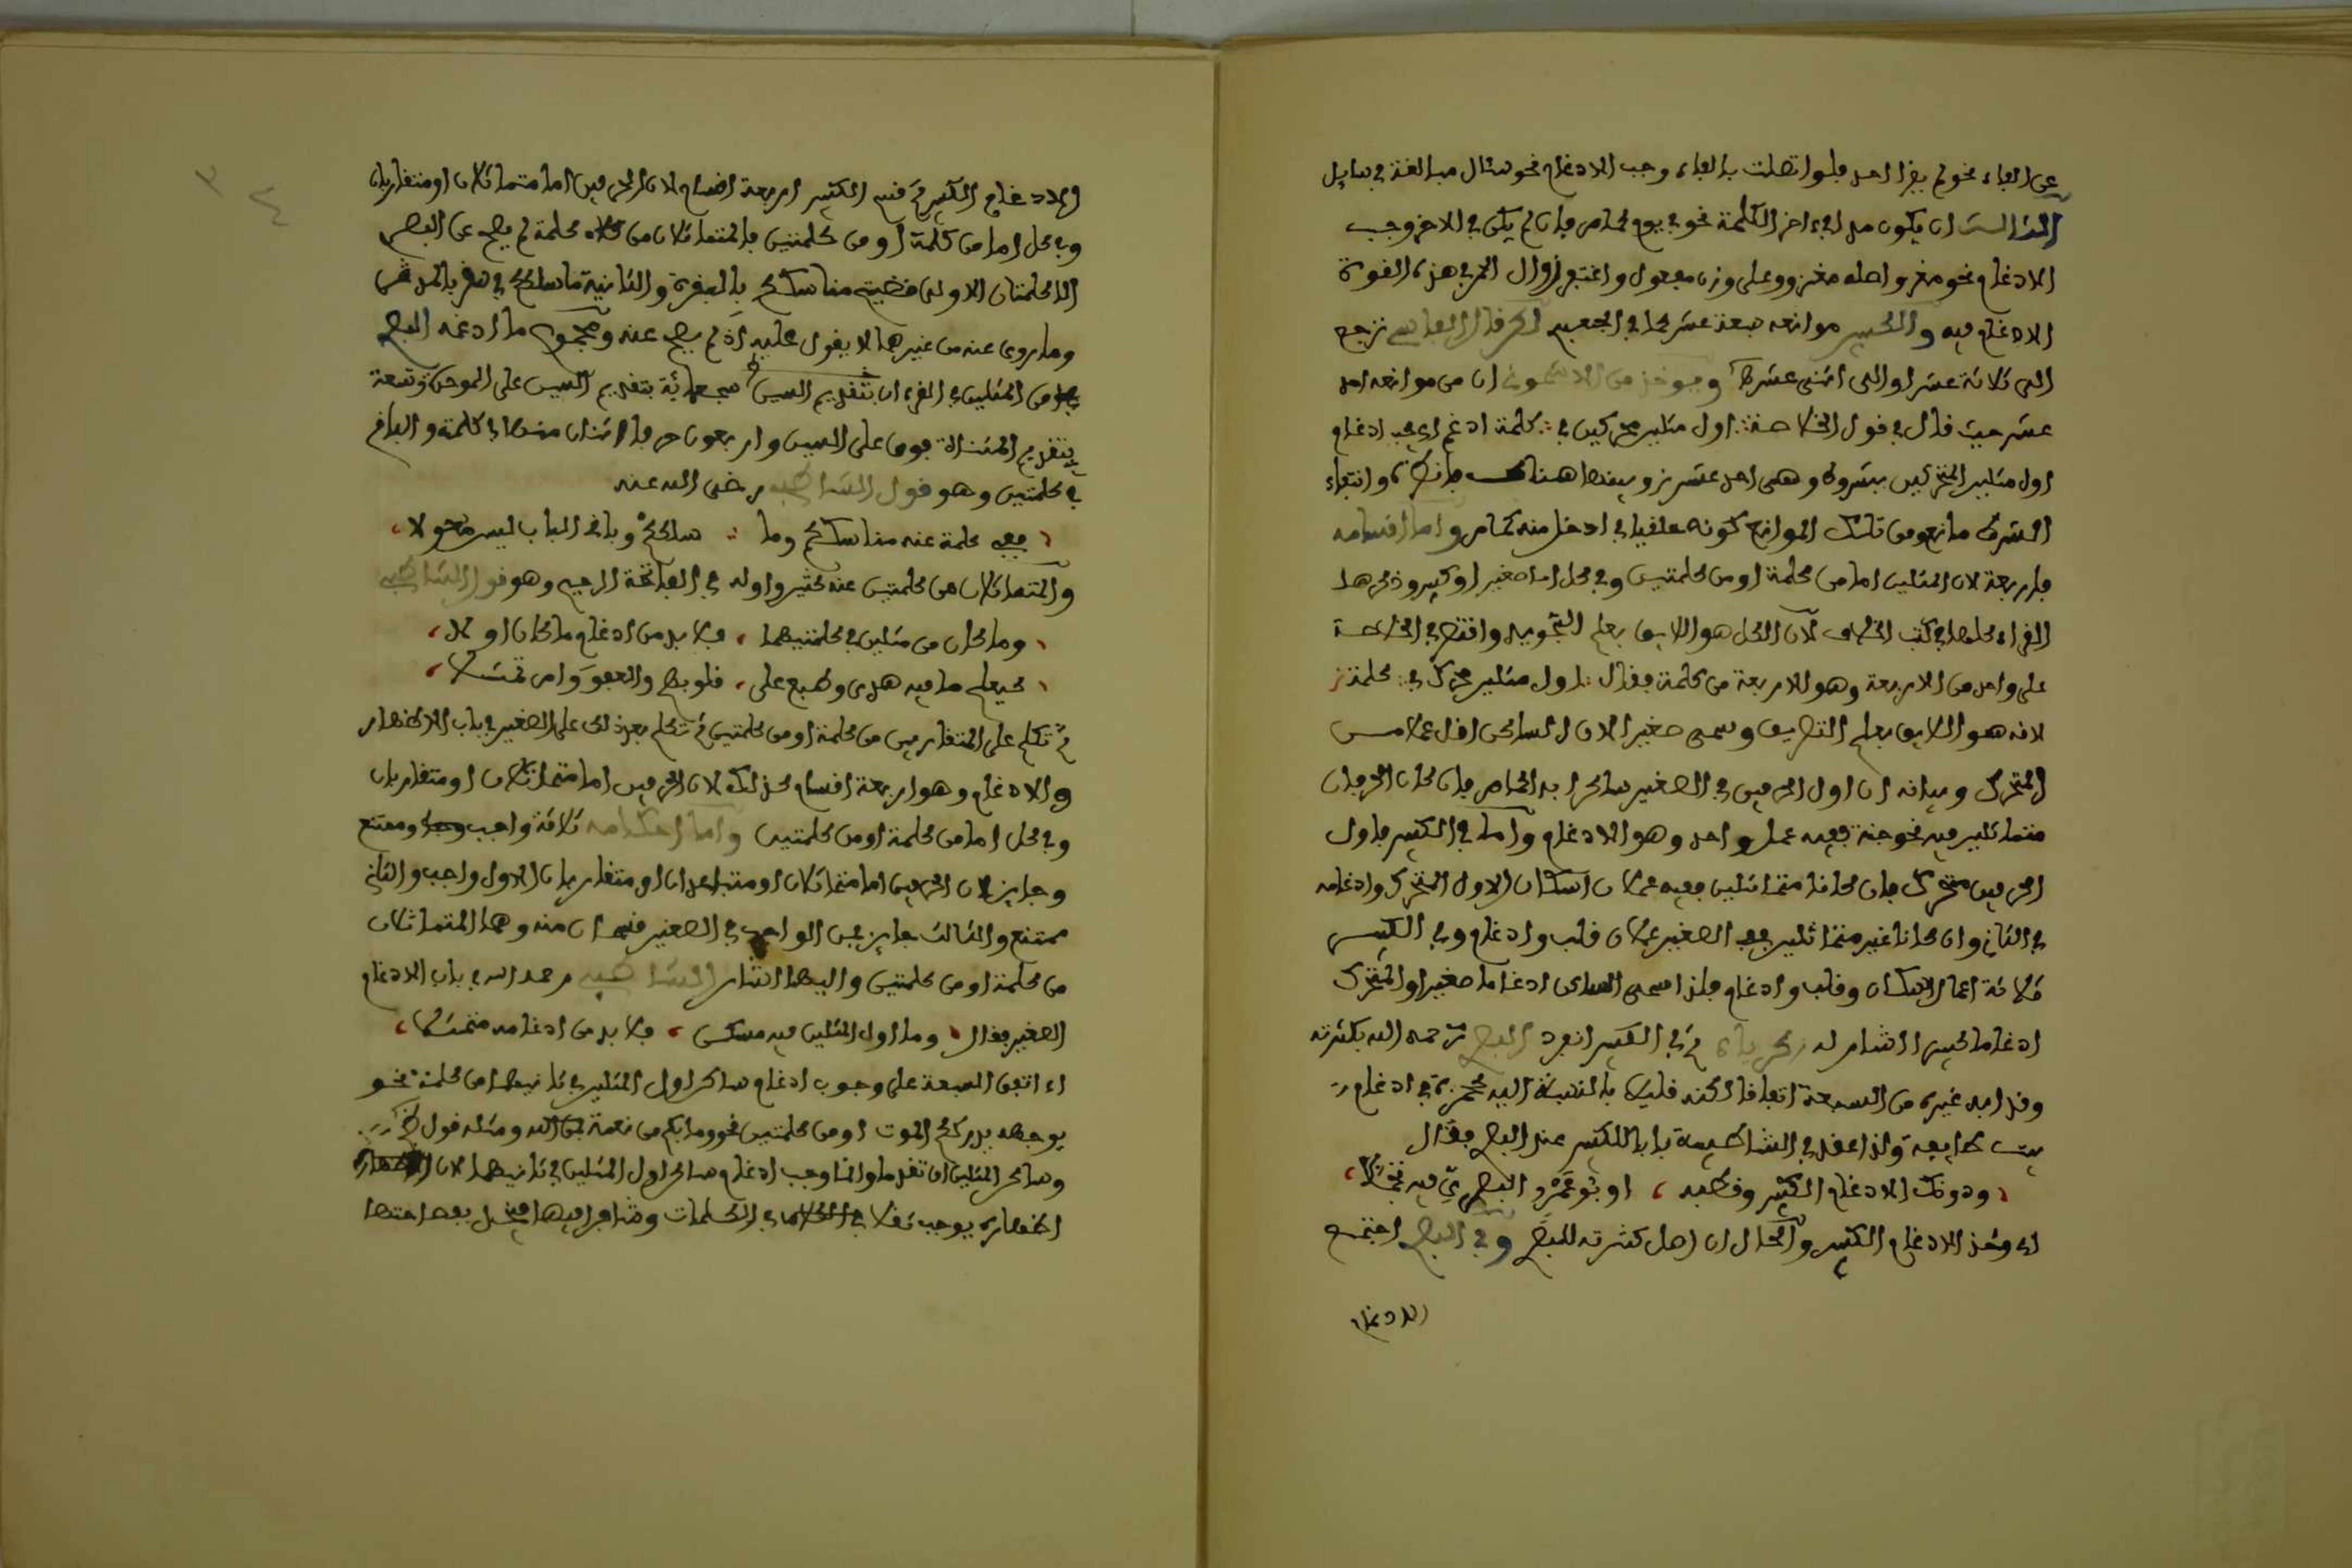 عن الفاء نحو لم يقرا احد فلو اتصلت بالفاء وجب الادغام نحو سئال مبالغة في سايل
الثالث ان يكون مد في اخر الكلمة نحو في يوم كما مر فان لم يكن في الاخر وجب
الادغام نحو مغزو اصله مغزوو على وزن مفعول واغتفر زوال المد في هذه القوة
الادغام فيه والكبير موانعه سبعة عشر كما في الجعبري لكن قال الفاسي ترجع
الى ثلاثة عشر او الى اثنى عشر ويوخذ من الاشموني ان من موانعه احد
عشر حيث قال في قول الخلاصة اول مثلين محركين في كلمة ادغم اي يجب ادغام
اول مثلين المتحركين بشروط وهي احد عشر وبينها هناك فانظره وانتفاء
الشرط مانع ومن تلك الموانع كونه ملحقا في ادخل منه كما مر واما اقسامه
فاربعة لان المثلين اما من كلمة او من كلمتين وفي كل اما صغير او كبير وذكرها
القراء كلها في كتب الخلاف لان الكل هو اللايق بعلم التجويد واقتصر في الخلاصة
على واحد من الاربعة وهو من كلمة فقال اول مثلين محرك في كلمة
لانه هو اللايق بعلم التصريف وسمي صغيرا لان الساكن اقل عملا من
المتحرك وبيانه ان اول الحرفين في الصغير ساكن ابدا كما مر فان كان الحرفان
متماثلين فيه نحو جنة ففيه عمل واحد وهو الادغام واما في الكبير فاول
الحرفين متحرك فان كانا متماثلين ففيه عملان اسكان الاول المتحرك وادغامه
في الثاني وان كانا غير متماثلين ففي الصغير عملان قلب وادغام وفي الكبير
ثلاثة اعمال اسكان وقلب وادغام فلذا سمي الساكن ادغاما صغيرا والمتحرك
ادغاما كبيرا اشار له زكرياء ثم في الكبير انفرد البصري رحمه الله بكثرته
وقد ادغم غيره من السبعة اتفاقا لكنه قليلا بالنسبة اليه كحمزة في ادغام
بيت طايفة ولذا عقد في الشاطبية بابا للكبير عند البصري فقال
ودونك الادغام الكبير وقطبه ، ابو عمرو البصري فيه تحفلا
اي وخذ الادغام الكبير والحال ان اصل كثرته للبصري وفي البصري اجتمع
الادغام
الادغام الكبير ثم قسم الكبير اربعة اقسام لان الحرفين اما متماثلان او متقاربان
وفي كل اما من كلمة او من كلمتين فالمتماثلان من كلمة لم يصح عن البصري
الا كلمتان الاولى قضيتم مناسككم بالبقرة والثانية ما سلككم في سقر بالمدثر
وما روي عنه من غيرهما لا يعول عليه اذ لم يصح عنه ومجموع ما ادغمه البصري
من المثلين في القرءان بتقديم السين سبعمائة بتقديم السين على الموحدة وتسعة
بتقديم المثناة فوق على السين واربعون حرفا اثنان منها في كلمة والباقي
في كلمتين وهو قول الشاطبي رضى الله عنه
ففي كلمة عنه مناسككم وما ∴ سلككم وباقي الباب ليس معولا
والمتماثلان من كلمتين عنه كثير واوله في الفاتحة الرحيم وهو قول الشاطبي
وما كان من مثلين في كلمتيهما ، فلا بد من ادغام ما كان اولا
كيعلم ما فيه هدى وطبع على ، قلوبهم والعفو وامر تمثلا
ثم تكلم على المتقاربين من كلمة او من كلمتين ثم تكلم بعد ذلك على الصغير في باب الاظهار
والادغام وهو اربعة اقسام كذلك لان الحرفين اما متماثلان او متقاربان
وفي كل اما من كلمة او من كلمتين واما احكامه ثلاثة واجب وممتنع
وجايز لان الحرفين اما متماثلان او متباعدان او متقاربان الاول واجب والثاني
ممتنع والثالث جايز ثم الواجب في الصغير قسمان منه وهما المتماثلان
من كلمة او من كلمتين واليهما اشار الشاطبي رحمه الله في باب الادغام
الصغير فقال وما اول المثلين فيه مسكن ، فلا بد من ادغامه متمثلا
اي اتفق السبعة على وجوب ادغام ساكن اول المثلين في ثانيهما من كلمة نحو
يوجهه يدرككم الموت او من كلمتين نحو وما بكم من نعمة فمن الله ومثله قول
وساكن المثلين ان تقدما وانما وجب ادغام ساكن اول المثلين في ثانيهما لان
اظهاره يوجب ثقلا في الكلمات